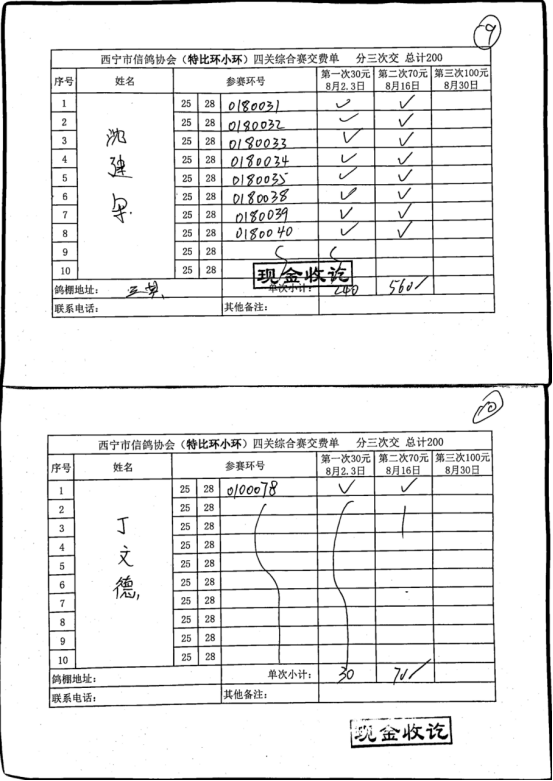 9
西宁市信鸽协会（特比环小环）四关综合赛交费单 分三次交 总计200
序号 姓名 参赛环号 第一次30元 8月2.3日 第二次70元 8月16日 第三次100元 8月30日
1 25 28 0180031 ✓ ✓
2 25 28 0180032 ✓ ✓
3 25 28 0180033 ✓ ✓
4 25 28 0180034 ✓ ✓
5 25 28 0180035 ✓ ✓
6 25 28 0180038 ✓ ✓
7 25 28 0180039 ✓ ✓
8 25 28 0180040 ✓ ✓
9 25 28
10 25 28
现金收讫
鸽棚地址： 单次小计： 240 560
联系电话： 其他备注：
10
西宁市信鸽协会（特比环小环）四关综合赛交费单 分三次交 总计200
序号 姓名 参赛环号 第一次30元 8月2.3日 第二次70元 8月16日 第三次100元 8月30日
丁文德
1 25 28 0100078 ✓ ✓
2 25 28
3 25 28
4 25 28
5 25 28
6 25 28
7 25 28
8 25 28
9 25 28
10 25 28
鸽棚地址： 单次小计： 30 70
联系电话： 其他备注：
现金收讫